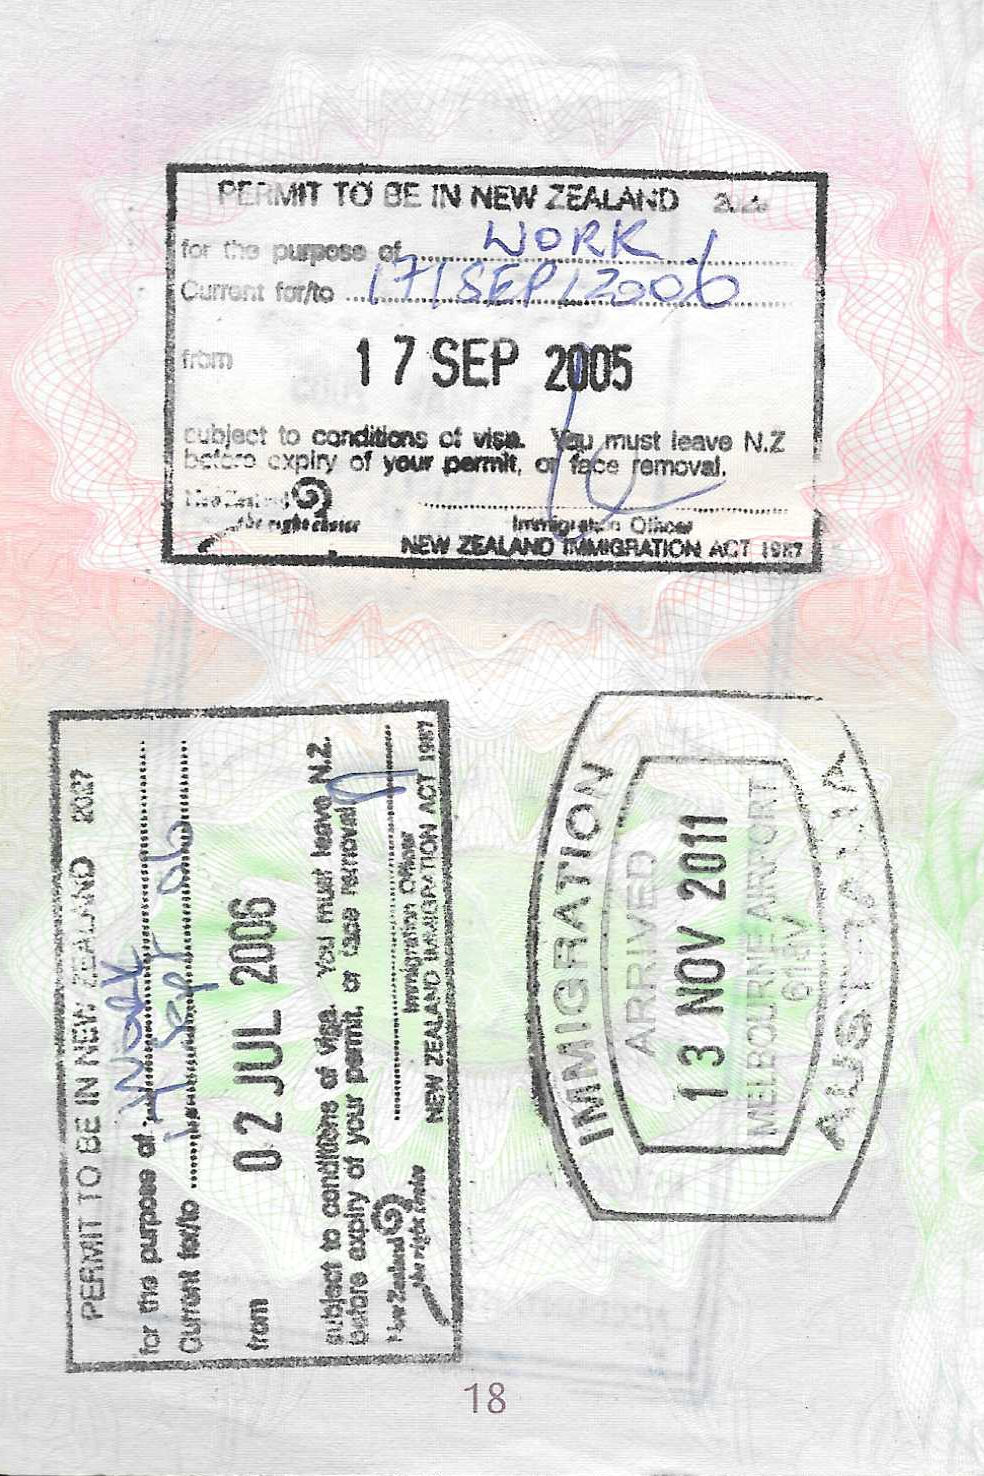 PERMIT TO BE IN NEW ZEALAND
for the purpose of WORK
Current for/to 17/SEP/2006
from 17 SEP 2005
subject to conditions of visa. You must leave N.Z
before expiry of your permit, or face removal.
New Zealand
the right choice
Immigration Officer
NEW ZEALAND IMMIGRATION ACT 1987
PERMIT TO BE IN NEW ZEALAND 2027
for the purpose of Work
Current for/to 17 Sept 06
from 02 JUL 2006
subject to conditions of visa. You must leave N.Z.
before expiry of your permit, or face removal
New Zealand
the right choice
Immigration Officer
NEW ZEALAND IMMIGRATION ACT 1987
IMMIGRATION
ARRIVED
13 NOV 2011
MELBOURNE AIRPORT
AUSTRALIA
18